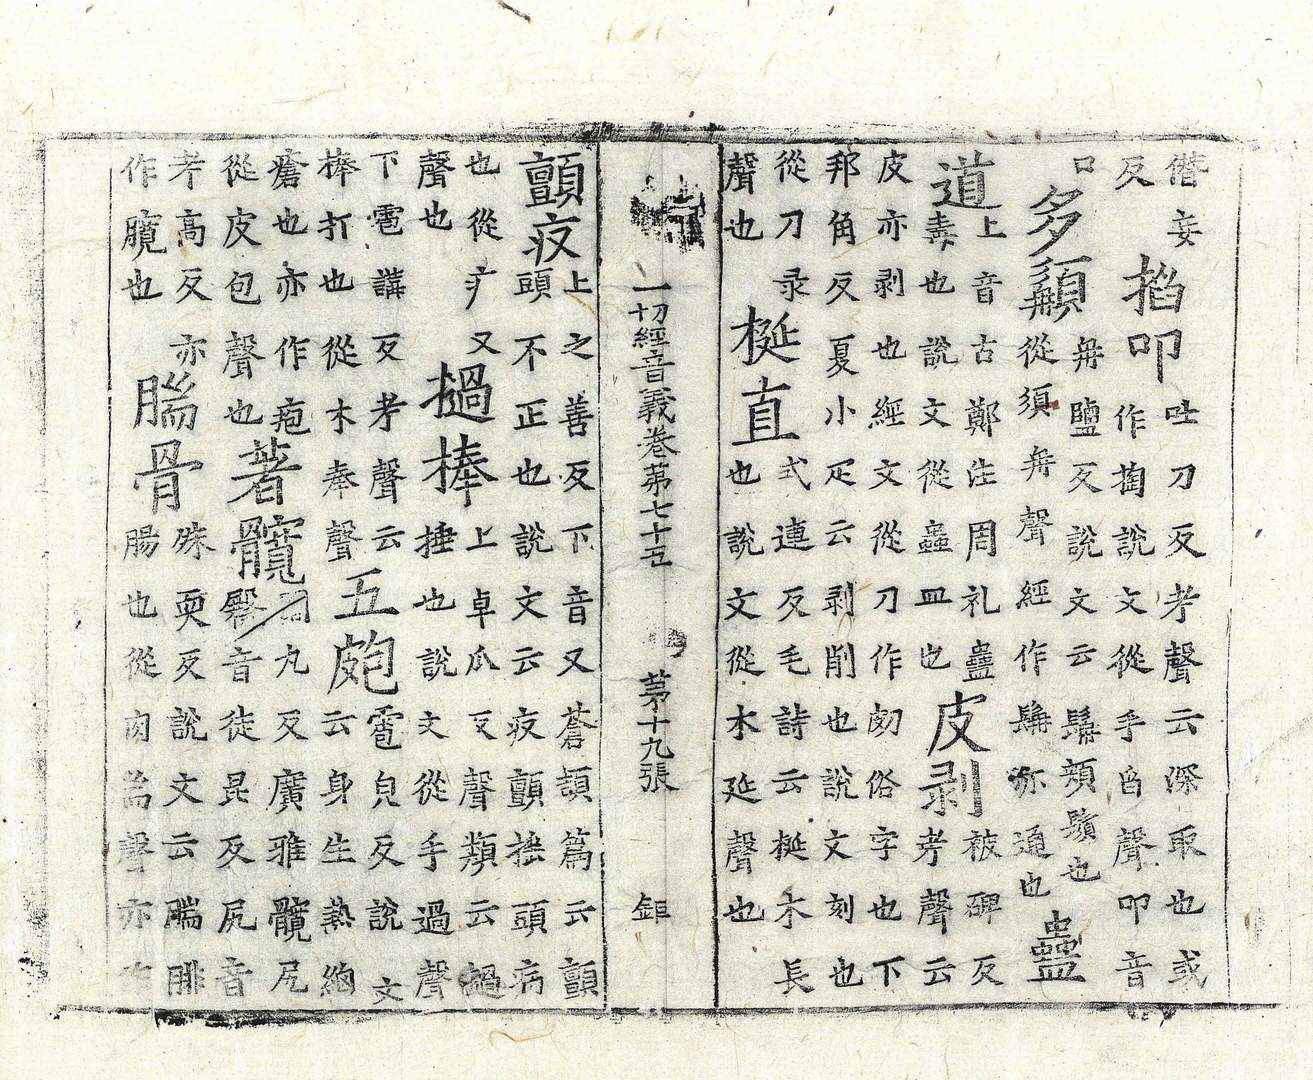 僭妄
反
掐叩
吐刀反考聲云深取也或
作掏說文從手舀聲叩音
口
多鬚
冉鹽反說文云髯頰鬚也
從須冉聲經作髯亦通也
蠱
道
上音古鄭注周礼蠱
毒也說文從蟲皿也
皮剥
被碑反
考聲云
皮亦剥也經文從刀作㓟俗字也下
邦角反夏小疋云剥削也說文刻也
從刀录
聲也
梃直
式連反毛詩云梃木長
也說文從木延聲也
一切經音義卷苐七十五 苐十九張 鉅
顫疚
上之善反下音又蒼頡篇云顫
頭不正也說文云疚顫搖頭病
也從疒又
聲也
撾棒
上卓瓜反聲類云撾
捶也說文從手過聲
下雹講反考聲云
棒打也從木奉聲
五皰
雹皃反說文
云身生熱皰
瘡也亦作疱
從皮包聲也
著髖
丸反廣雅髖尻
臀音徒昆反尻音
考高反亦
作臗也
腨骨
殊耎反說文云腨腓
腸也從肉耑聲亦作